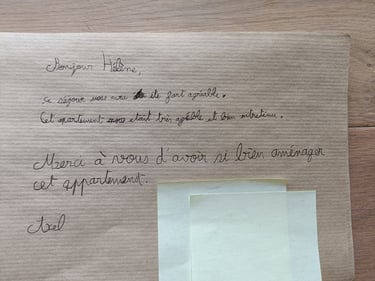 Bonjour Hélène,
ce séjour nous aura été fort agréable.
Cet apartement nous etait très agréable et bien entretenu.
Merci à vous d'avoir si bien aménager
cet appartement.
Axel